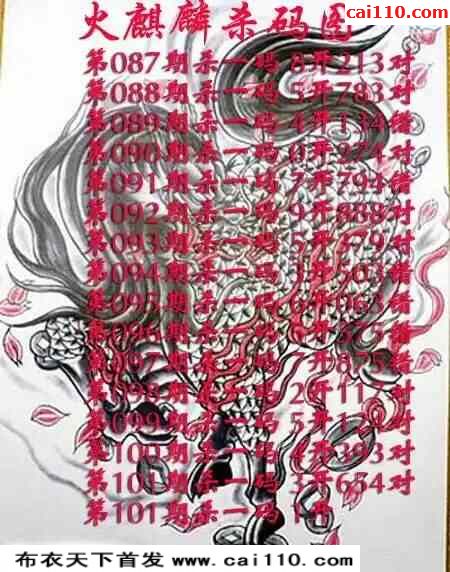 www.cai110.com
火麒麟杀码图
第087期杀一码8开213对
第088期杀一码5开783对
第089期杀一码4开134错
第090期杀一码0开274对
第091期杀一码7开794错
第092期杀一码9开888对
第093期杀一码5开779对
第094期杀一码3开503错
第095期杀一码6开063错
第096期杀一码 开575错
第097期杀一码7开875错
第098期杀一码2开11 对
第099期杀一码5开12 对
第100期杀一码4开393对
第101期杀一码3开654对
第101期杀一码1开
布衣天下首发 www.cai110.com